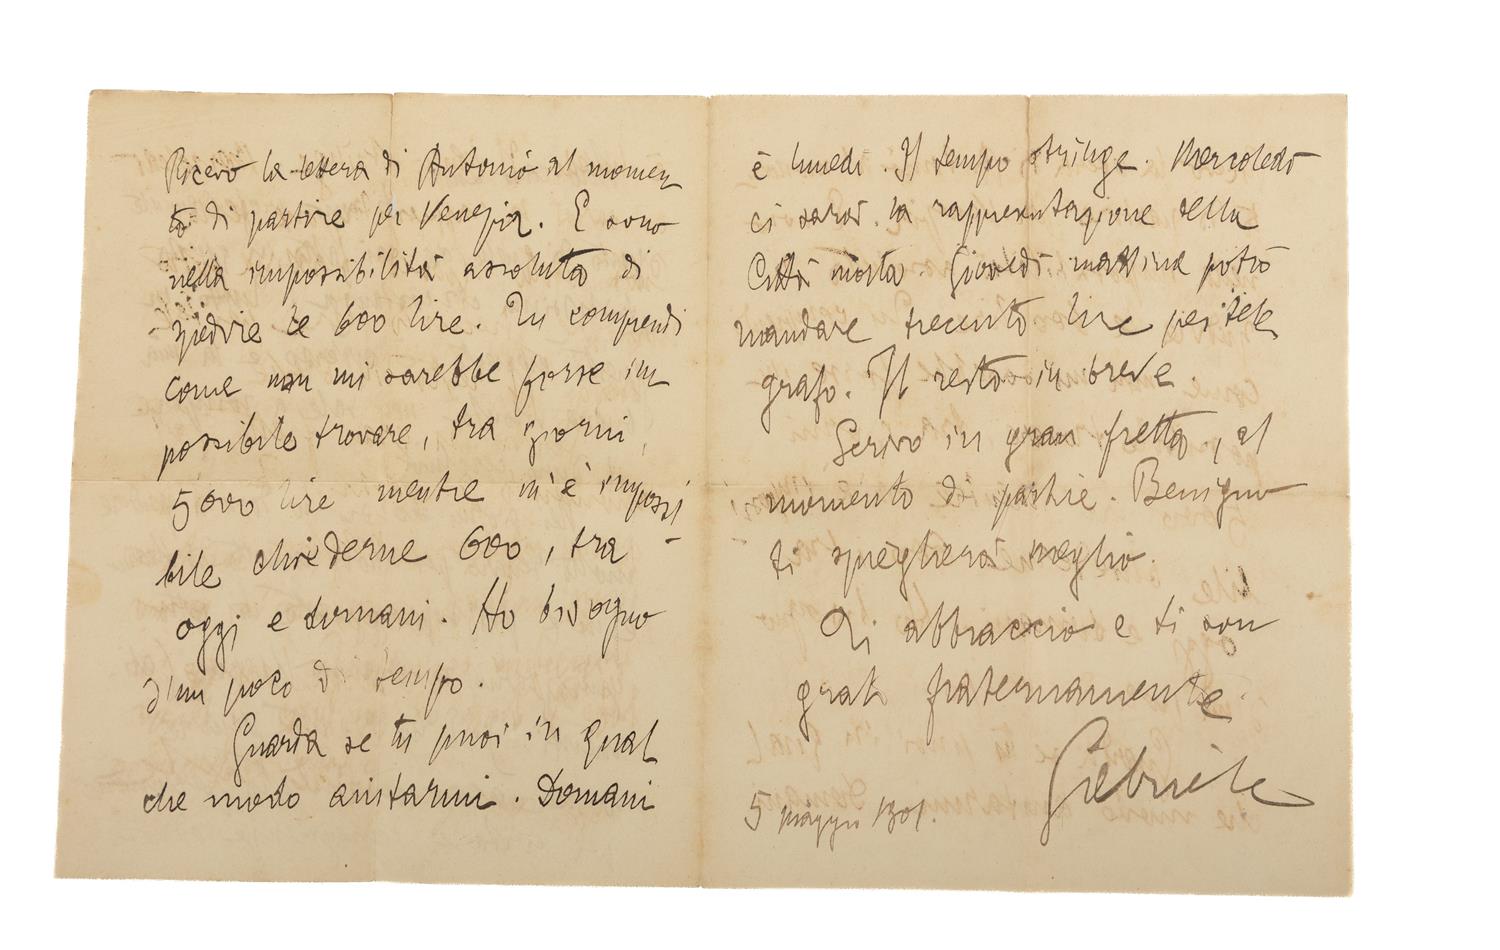 Ricevo la lettera di Antonio al momen
to di partire per Venezia. E sono
nella impossibilità assoluta di
spedire le 600 lire. Tu comprendi
come non mi sarebbe forse im
possibile trovare, tra giorni,
5000 lire mentre m'è impossi
bile chiederne 600, tra
oggi e domani. Ho bisogno
d'un poco di tempo.
Guarda se tu puoi in qual
che modo aiutarmi. Domani
è lunedì. Il tempo stringe. Mercoledì
ci sarà la rappresentazione della
Città morta. Giovedì mattina potrò
mandare trecento lire per tele
grafo. Il resto in breve.
Scrivo in gran fretta, al
momento di partire. Benigno
ti spiegherà meglio.
Ti abbraccio e ti son
grato fraternamente.
Gabriele
5 maggio 1901.